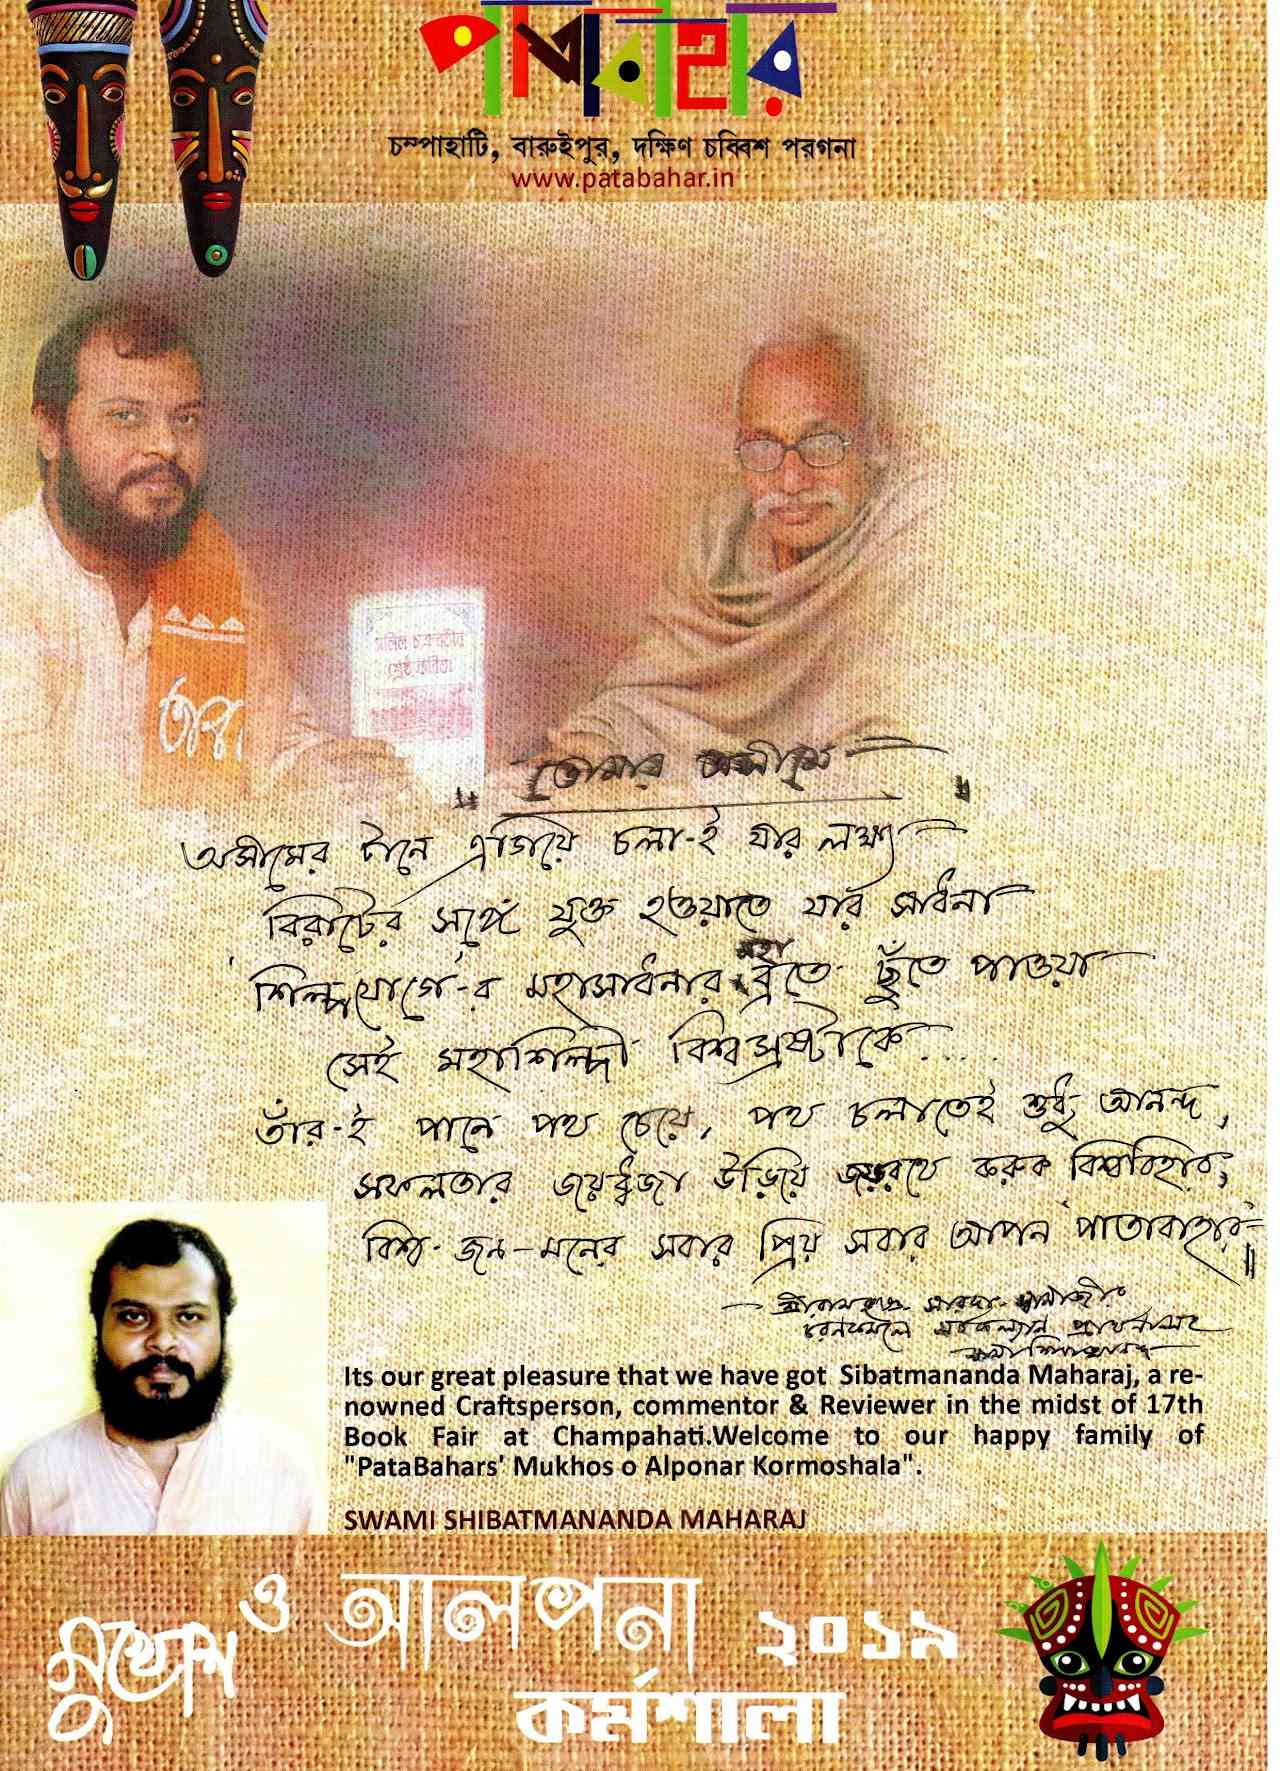 পাতাবাহার
চম্পাহাটি, বারুইপুর, দক্ষিণ চব্বিশ পরগনা
www.patabahar.in
সলিল চক্রবর্তীর
শ্রেষ্ঠ কবিতা
তারা
" তোমার অসীমে "
অসীমের টানে এগিয়ে চলা-ই যার লক্ষ্য
বিরাটের সঙ্গে যুক্ত হওয়াতে যার সাধনা
'শিল্পযোগে'-র মহাসাধনার মহা ব্রতে ছুঁতে পাওয়া
সেই মহাশিল্পী বিশ্বস্রষ্টাকে.....
তাঁর-ই পানে পথ চেয়ে, পথ চলাতেই শুধু আনন্দ,
সফলতার জয়ধ্বজা উড়িয়ে জয়রথে করুক বিশ্ববিহার,
বিশ্ব-জন-মনের সবার প্রিয় সবার আপন 'পাতাবাহার'॥
শ্রীরামকৃষ্ণ-সারদা-স্বামীজীর
চরনকমলে সর্বকল্যান প্রার্থনাসহ
স্বামী শিবাত্মানন্দ
Its our great pleasure that we have got Sibatmananda Maharaj, a re-
nowned Craftsperson, commentor & Reviewer in the midst of 17th
Book Fair at Champahati.Welcome to our happy family of
"PataBahars' Mukhos o Alponar Kormoshala".
SWAMI SHIBATMANANDA MAHARAJ
মুখোশ ও আলপনা ২০১৯
কর্মশালা